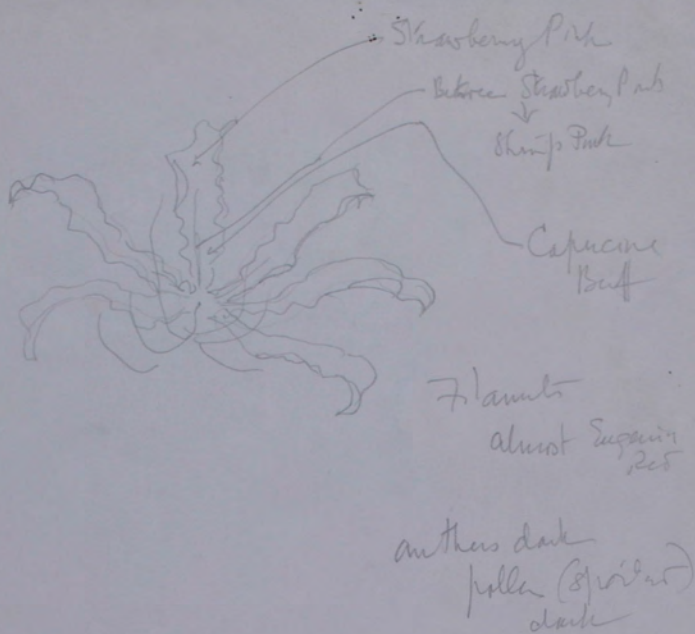 Strawberry Pink
Between Strawberry Pink
Shrimp Pink
Capucine
Buff
Filaments
almost Eugenia
Red
anthers dark
pollen (spoilt)
dark